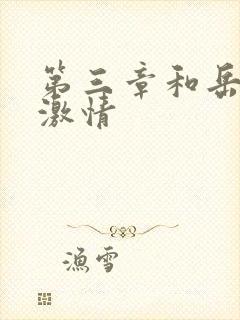 第三章和岳
激情
渔雪